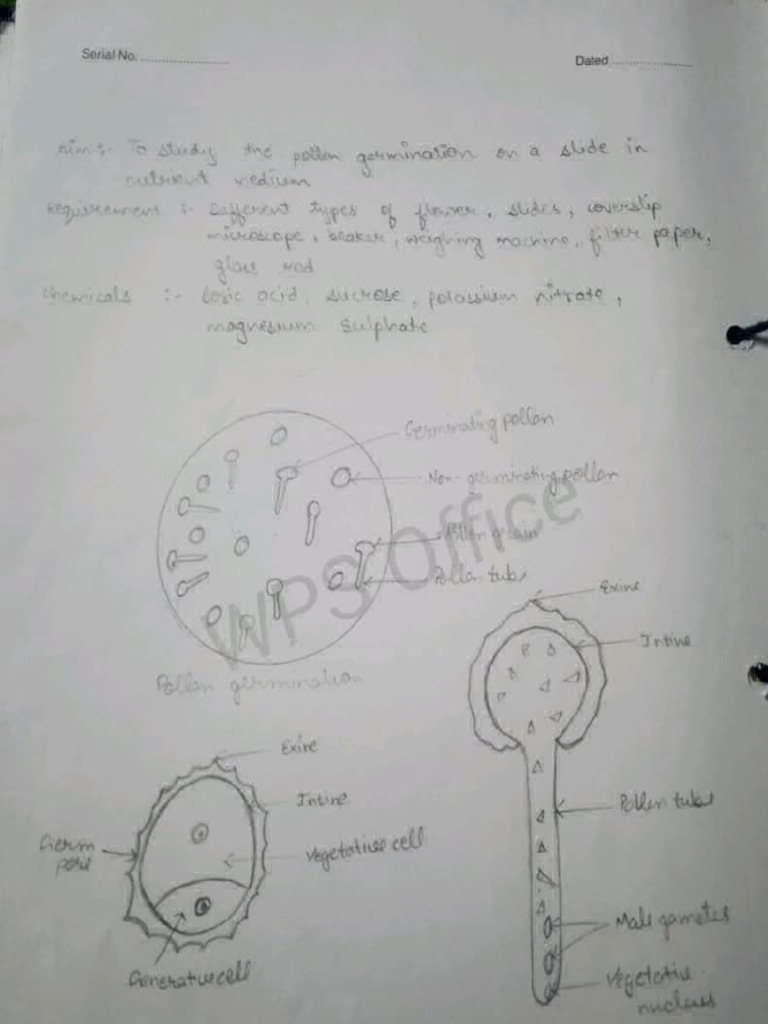 Serial No. ......................
Dated ......................
Aim :- To study the pollen germination on a slide in
nutrient medium
Requirement :- Different types of flower, slides, coverslip
microscope, beaker, weighing machine, filter paper,
glass rod
Chemicals :- boric acid, sucrose, potassium nitrate,
magnesium sulphate
Germinating pollen
Non-germinating pollen
Pollen grain
Pollen tube
WPS Office
Pollen germination
Exine
Intine
Pollen tube
Male gametes
Vegetative
nucleus
Exine
Intine
Germ
pore
Vegetative cell
Generative cell